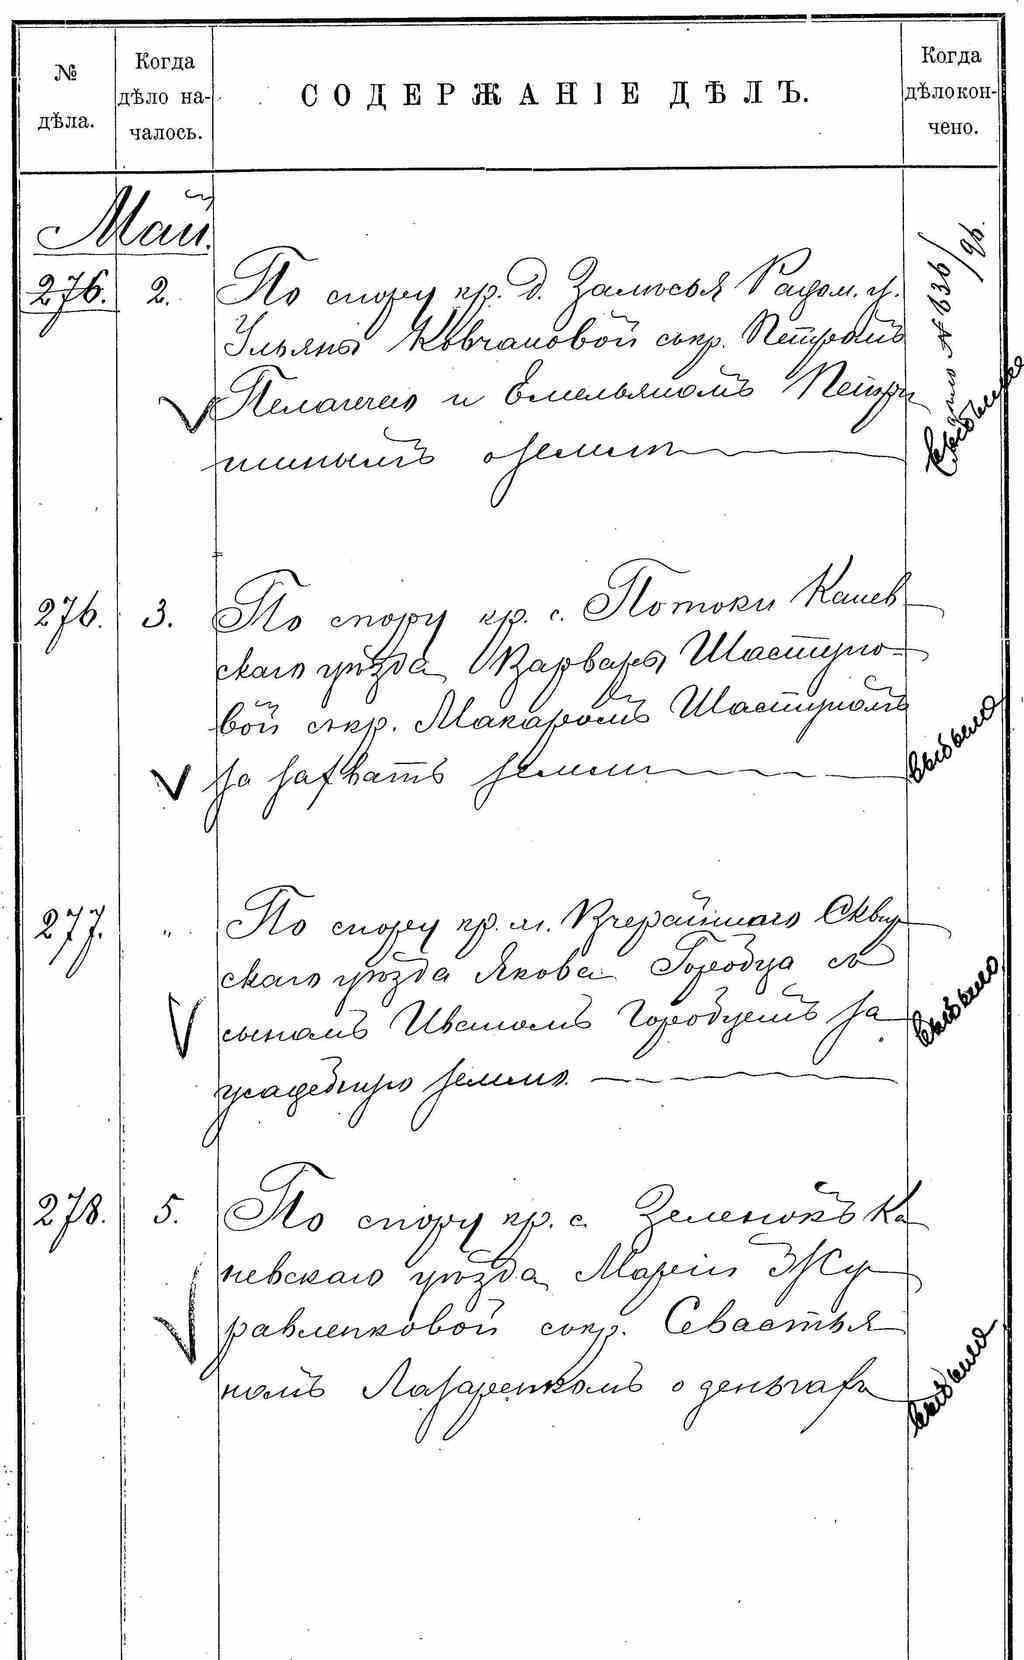 № дѣла.
Когда дѣло на-
чалось.
СОДЕРЖАНІЕ ДѢЛЪ.
Когда дѣло кон-
чено.
Май.
276. 2. По спору кр. д. Залѣсья Радом. у.
Ульяны Ковчановой съ кр. Петромъ
Пелагеею и Емельяномъ Петри
шинымъ о землѣ
дѣло № 636/96.
выбыло
276. 3. По спору кр. с. Потоки Канев
скаго уѣзда Варвары Шасту
вой съ кр. Макаромъ
за захватъ земли
выбыло
277. „ По спору кр. м. Вчерайшаго Сквир
скаго уѣзда Якова Городца со
сыномъ Иваномъ Городцемъ за
усадебную землю.
выбыло
278. 5. По спору кр. с. Зеленокъ Ка
невскаго уѣзда Маріи Жу
равленковой съ кр. Севастья
номъ Лазаренкомъ о деньгахъ
выбыло